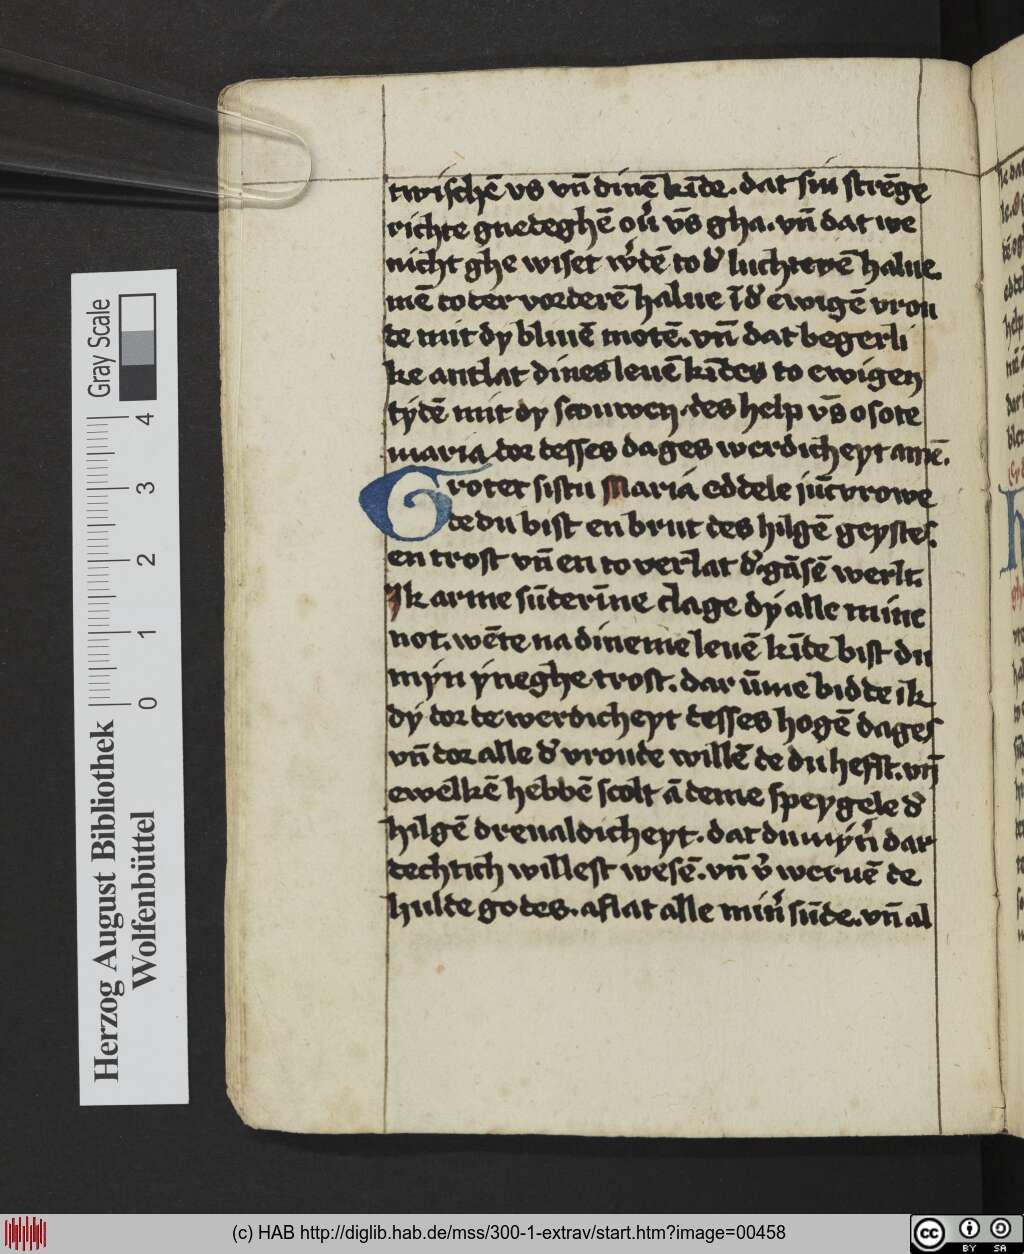 twischē vs vn̄ dinē kīde. dat sin strēge
richte gnedeghē ou̓ vn̄s gha. vn̄ dat we
nicht ghe wiset w̓dē to d̓ luchterē halue.
mē to der vorderē halue ī d̓ ewigē vrou
de mit dy bliuē motē. vn̄ dat begerli
ke antlat dines leuē kīdes to ewigen
tydē mit dy scouwen. des help vn̄s o sote
maria dor desses dages werdicheyt amē.
Grotet sistu Maria eddele jūcvrowe
de du bist en brut des hilgē geystes.
en trost vn̄ en to verlat d̓ gāsē werlt.
Ik arme sūderīne clage dy alle mine
not. wēte na dineme leuē kīde bist du
myn yneghe trost. dar ūme bidde ik
dy dor de werdicheyt desses hogē dages
vn̄ dor alle d̓ vroude willē de du hefst. vn̄
ewelkē hebbē scolt ā deme speygele d̓
hilgē dreualdicheyt. dat du myn̓ dar
dechtich willest wesē. vn̄ v̓ weruē de
hulde godes. aflat alle min̓ sūde. vn̄ al
Herzog August Bibliothek
Wolfenbüttel
0 1 2 3 4
Gray Scale
(c) HAB http://diglib.hab.de/mss/300-1-extrav/start.htm?image=00458
cc BY SA